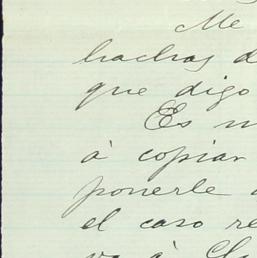 Me
hachas d
que digo
Es m
á copiar
ponerle a
el caso re
va á Ch